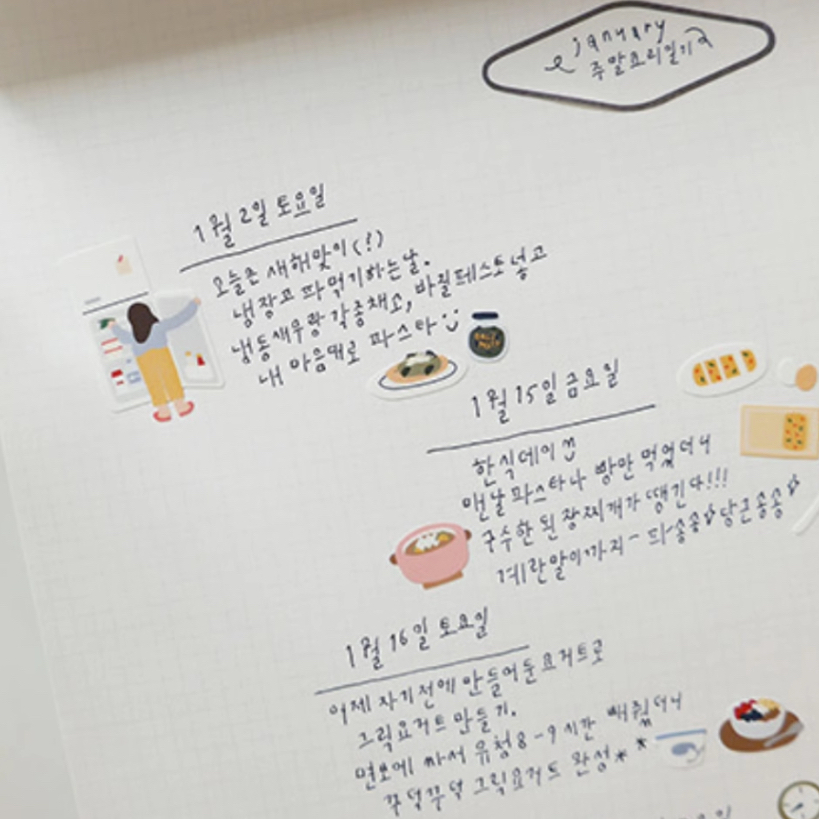 january
주말요리일기
1월 2일 토요일
오늘은 새해맞이(!)
냉장고 파먹기하는날.
냉동새우랑 각종채소, 바질페스토넣고
내 마음대로 파스타
1월 15일 금요일
한식데이
맨날 파스타나 빵만 먹었더니
구수한 된장찌개가 땡긴다!!!
계란말이까지~ 파송송 당근송송
1월 16일 토요일
어제 자기전에 만들어둔 요거트로
그릭요거트 만들기.
면보에 싸서 유청 8-9시간 빼줬더니
꾸덕꾸덕 그릭요거트 완성